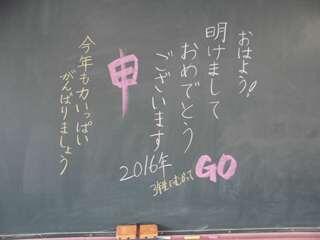 おはよう!
明けまして
おめでとう
ございます
2016年
3年生にむかって GO
申
今年も力いっぱい
がんばりましょう